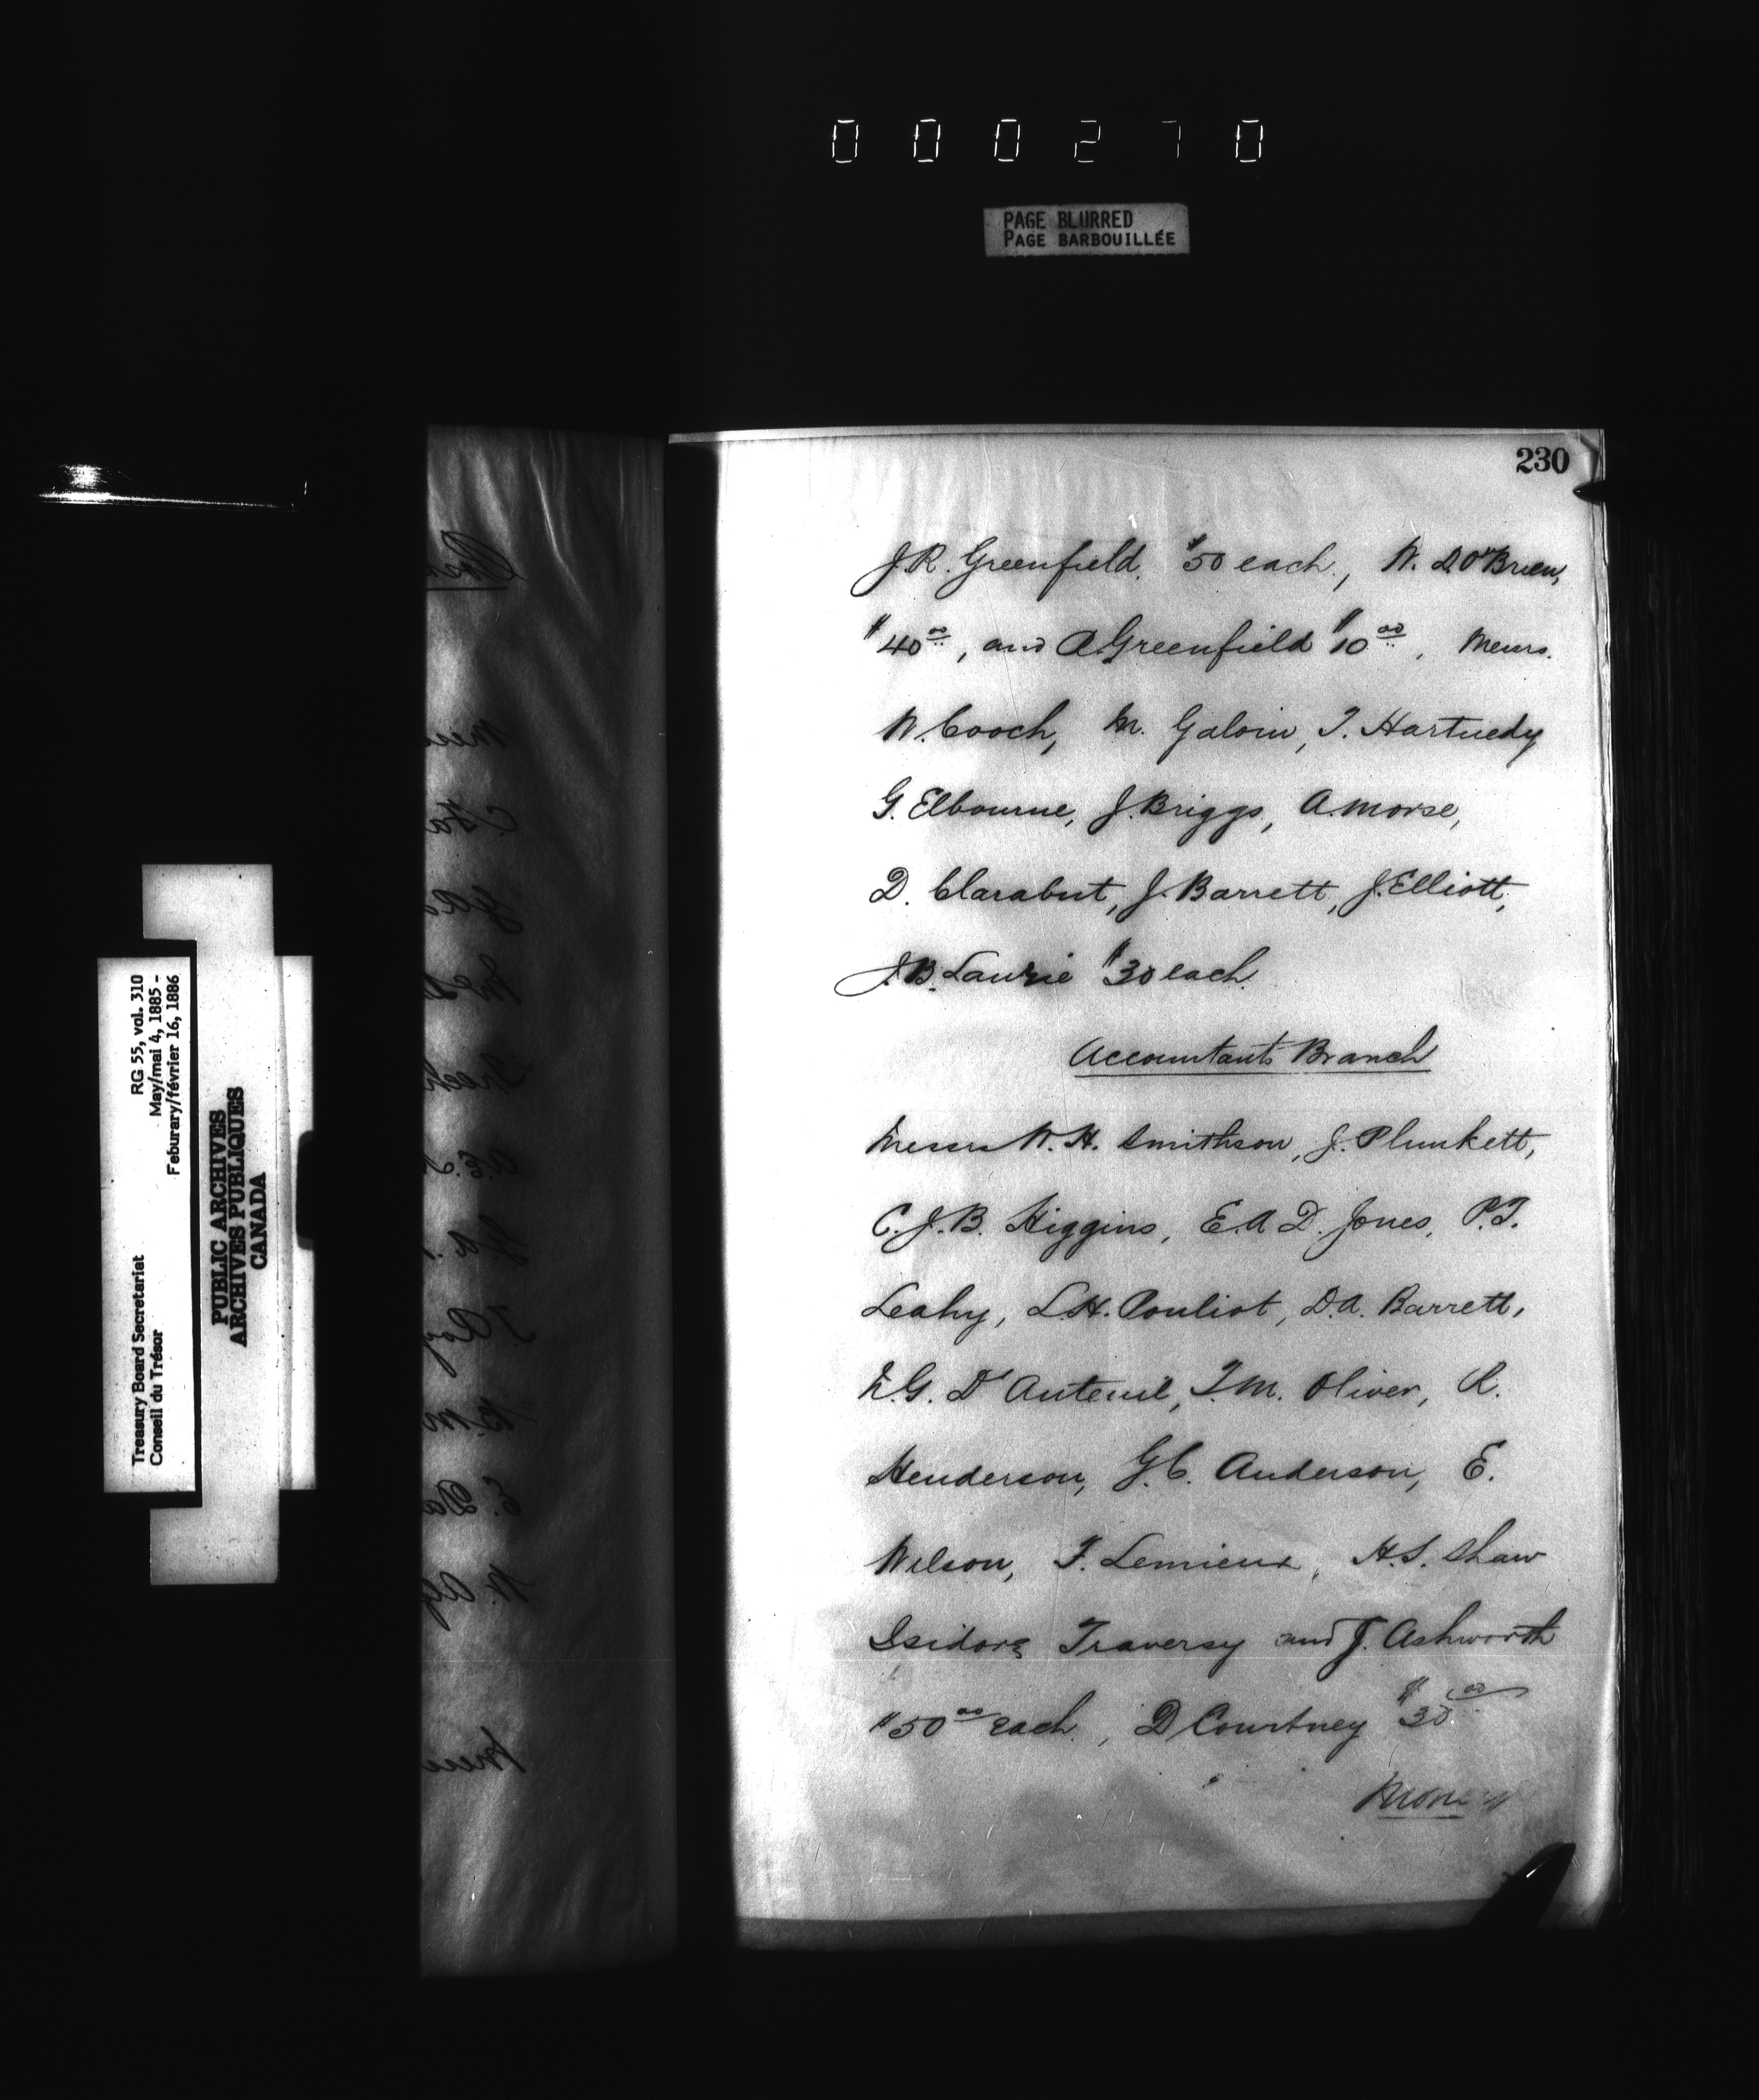 000270
PAGE BLURRED
PAGE BARBOUILLÉE
230
J.R. Greenfield. $50 each., W. D. O'Brien,
$40 00, and A. Greenfield $10 00, Messrs.
W. Cooch, M. Galvin, T. Hartnedy
G. Elbourne, J. Briggs, A. Morse,
D. Clarabut, J. Barrett, J. Elliott,
J.B. Laurie $30 each.
Accountants Branch
Messrs W. H. Smithson, J. Plunkett,
C. J. B. Higgins, E. A. D. Jones, P. T.
Leahy, L.H. Pouliot, D.A. Barrett,
G. D'Auteuil, T. M. Oliver, R.
Henderson, G. C. Anderson, E.
Wilson, F. Lemieux, H. S. Shaw
Isidore Traversy and J. Ashworth
$50 00 each, D Courtney $30 00
Money
RG 55, vol. 310
May/mai 4, 1885 -
Feburary/février 16, 1886
Treasury Board Secretariat
Conseil du Trésor
PUBLIC ARCHIVES
ARCHIVES PUBLIQUES
CANADA